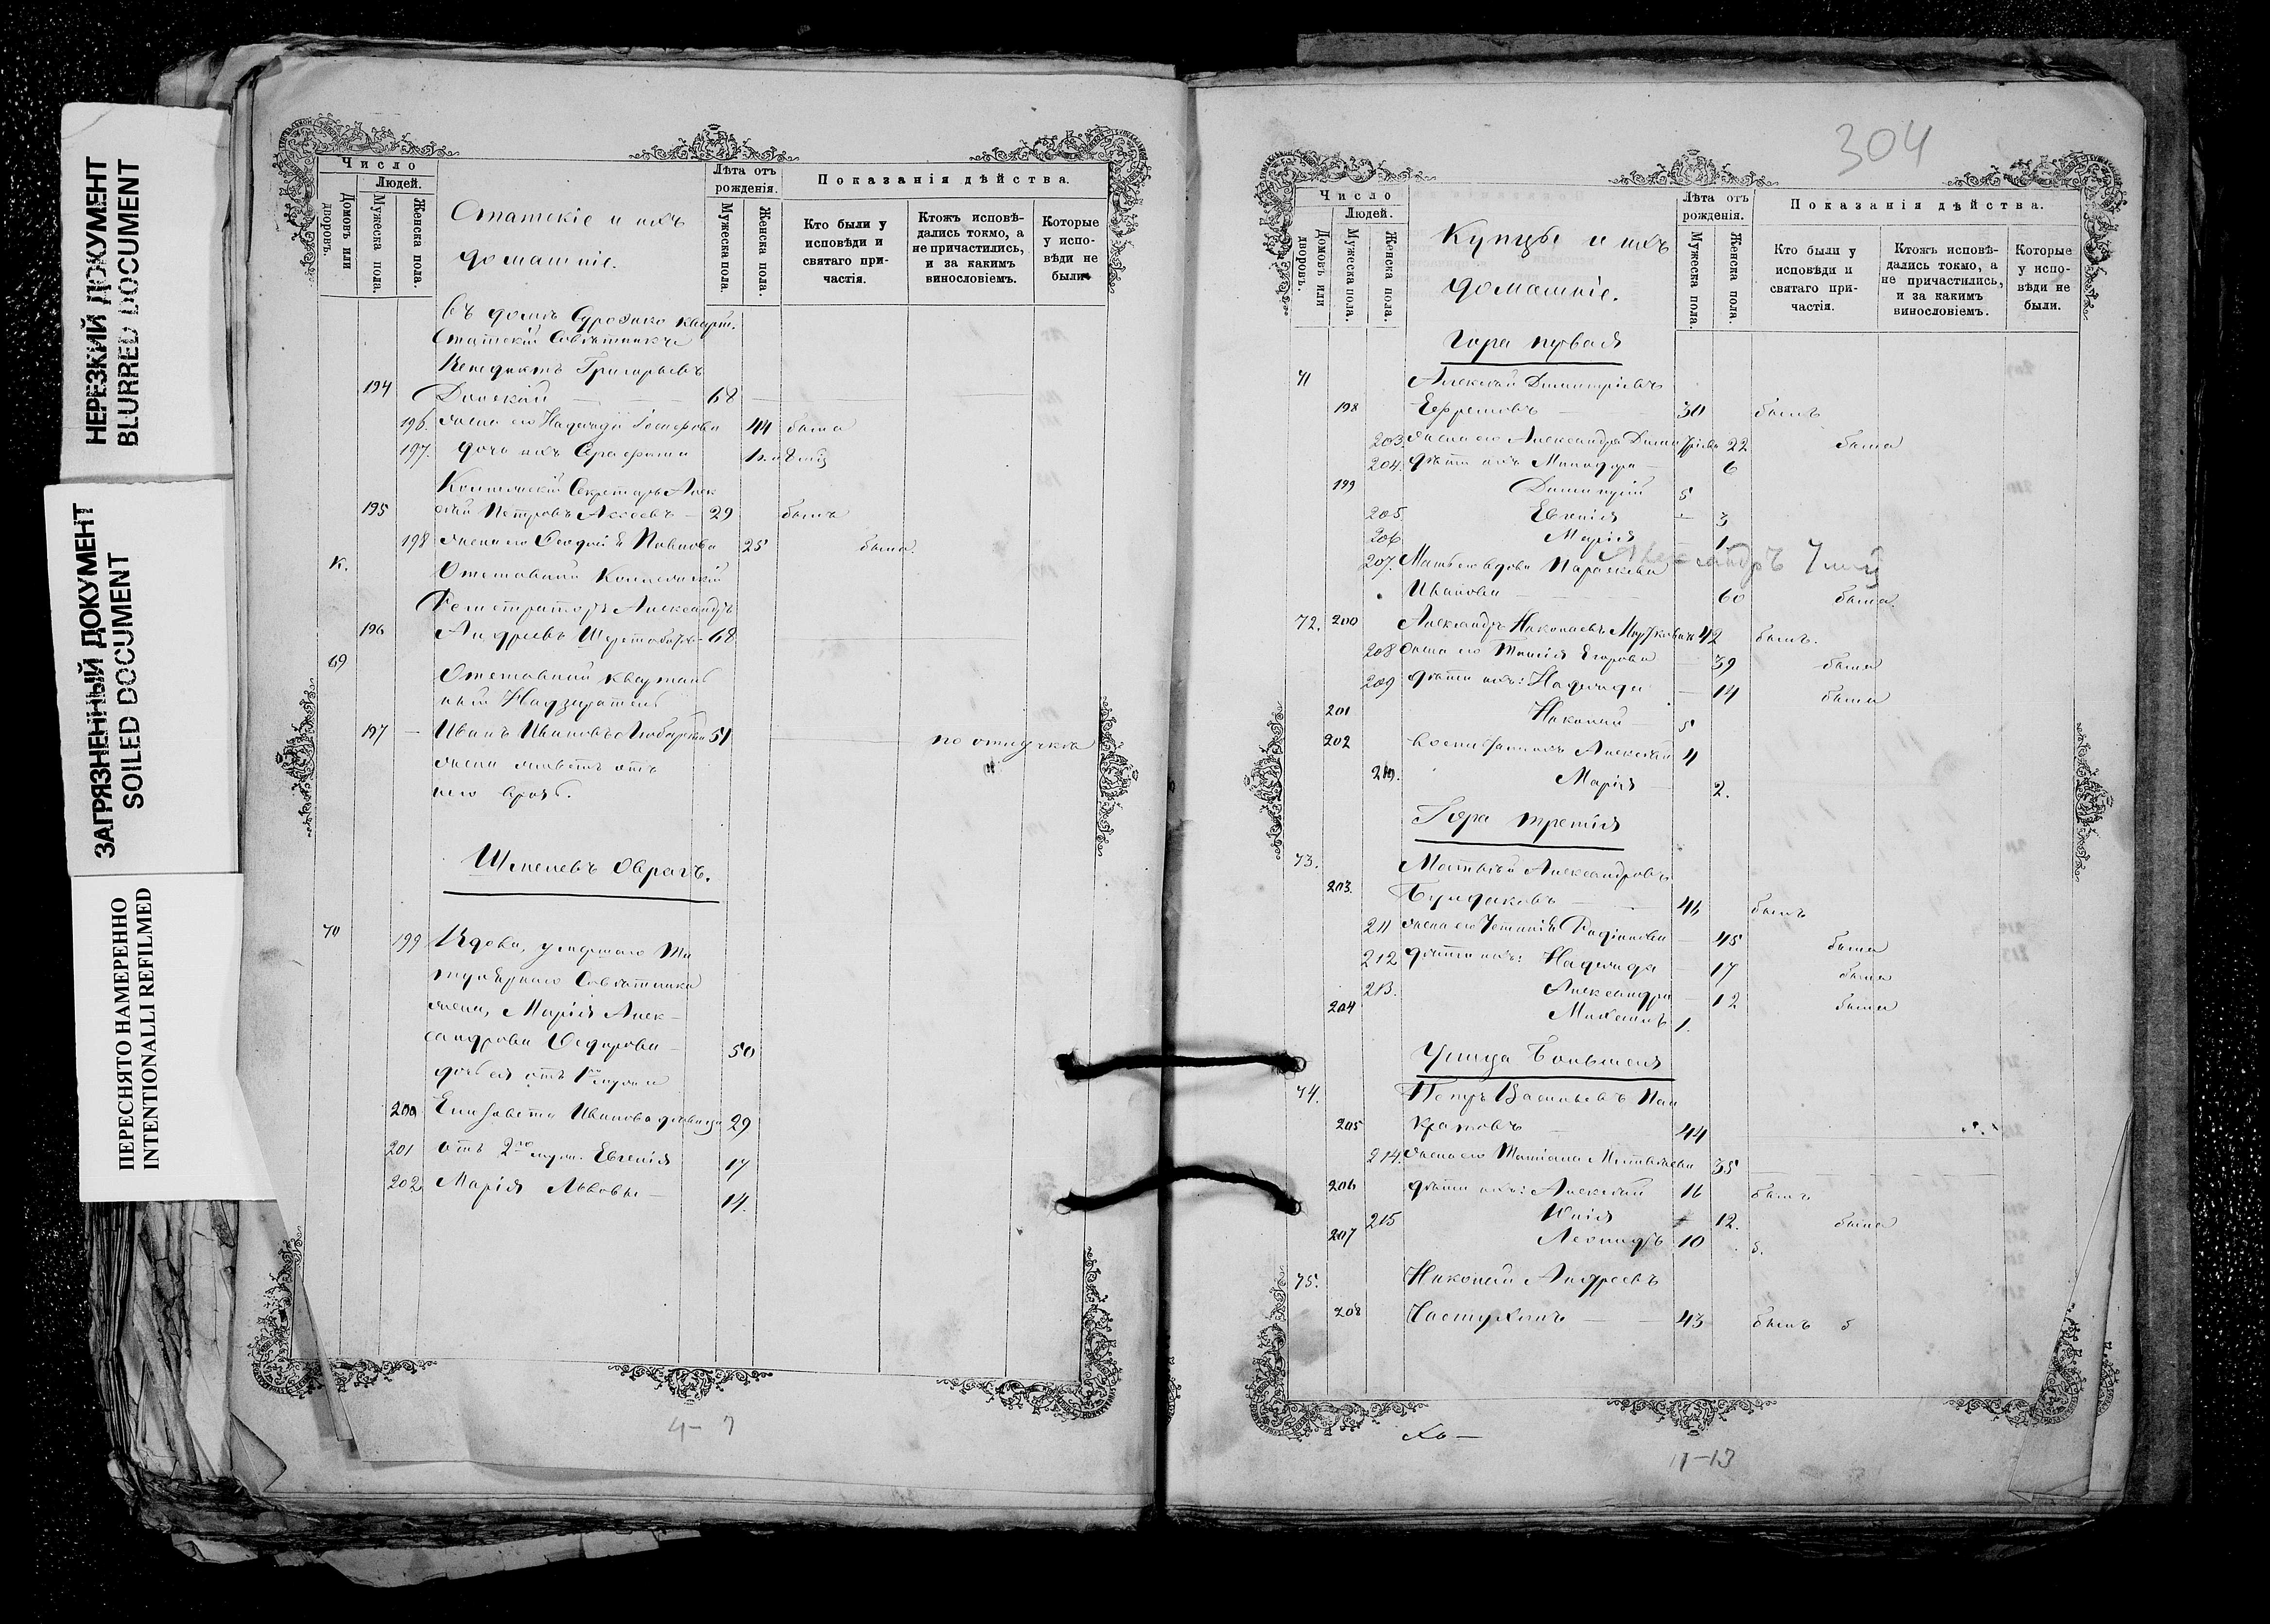 НЕРЕЗКИЙ ДОКУМЕНТ
BLURRED DOCUMENT
ЗАГРЯЗНЕННЫЙ ДОКУМЕНТ
SOILED DOCUMENT
ПЕРЕСНЯТО НАМЕРЕННО
INTENTIONALLI REFILMED
Число
Людей.
Домовъ или дворовъ.
Мужеска пола.
Женска пола.
Статскіе и ихъ
домашніе.
Лѣта отъ рожденія.
Мужеска пола.
Женска пола.
Показанія дѣйства.
Кто были у исповѣди и святаго причастія.
Ктожъ исповѣдались токмо, а не причастились, и за какимъ винословіемъ.
Которые у исповѣди не были.
въ домѣ кварт.
Статскій Совѣтникъ
Венедиктъ Григорьевъ
194 68
196. жена его Надежда 44 была
197. дочь ихъ Серафима
Коллежскій Секретарь Алек
195 сѣй Петровъ 29 былъ
198 жена его Павлова 25 была.
К. Отставный Коллежскій
Регистраторъ Александръ
196 Андреевъ 68
69 Отставный Квартал
ный Надзиратель
197 Иванъ Ивановъ 51 по отлучкѣ
жена живетъ отъ
него врозь.
Шмелевъ Оврагъ.
70 199 Вдова, умершаго Ти
тулярнаго Совѣтника
жена, Марія Алек-
сандрова Федорова 50
дочь ея отъ 1го мужа
200 Елизавета Иванова дѣвица 29
201 отъ 2го муж. Евгенія 17
202 Марія Львовы 14.
4-7
304
Число
Людей.
Домовъ или дворовъ.
Мужеска пола.
Женска пола.
Купцы и ихъ
домашніе.
Лѣта отъ рожденія.
Мужеска пола.
Женска пола.
Показанія дѣйства.
Кто были у исповѣди и святаго причастія.
Ктожъ исповѣдались токмо, а не причастились, и за какимъ винословіемъ.
Которые у исповѣди не были.
Гора первая
71 Алексѣй Димитріевъ
198 Ефремовъ 30 былъ
203. жена его Александра Димитріева 22 была
204. дѣти ихъ 6
199 Димитрій 5
205. Евгенія 3
206 Марія 1
Александръ 7 мѣц
207. Мать его вдова Параскева
Иванова 60 была.
72. 200 Александръ Николаевъ 42 былъ.
208 жена его Таисія Егорова 39 была
209 дѣти ихъ: Надежда 14 была
201 Николай 5
202 Алексѣй 4
210. Марія 2.
Гора третія
73. Матвѣй Александровъ
203. Бурдаковъ 46 былъ
211 жена его 45 была
212 дѣти ихъ: Надежда 17 была
213. Александра 12 была
204 Михаилъ 1.
Улица Большая
74. Петръ Васильевъ Пан
205 кратовъ 44
214. жена его Татіана Матвѣева 35
206 дѣти ихъ: Алексѣй 16 былъ
215 Юлія 12. была
207 Леонидъ 10 б.
75. Николай Андреевъ
208 Частухинъ 43 былъ б
11-13